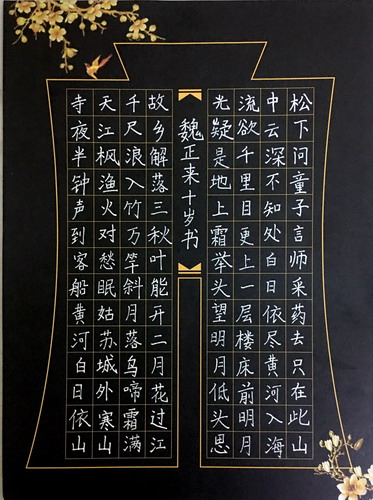 松下问童子言师采药去只在此山
中云深不知处白日依尽黄河入海
流欲千里目更上一层楼床前明月
光疑是地上霜举头望明月低头思
魏正来十岁书
故乡解落三秋叶能开二月花过江
千尺浪入竹万竿斜月落乌啼霜满
天江枫渔火对愁眠姑苏城外寒山
寺夜半钟声到客船黄河白日依山